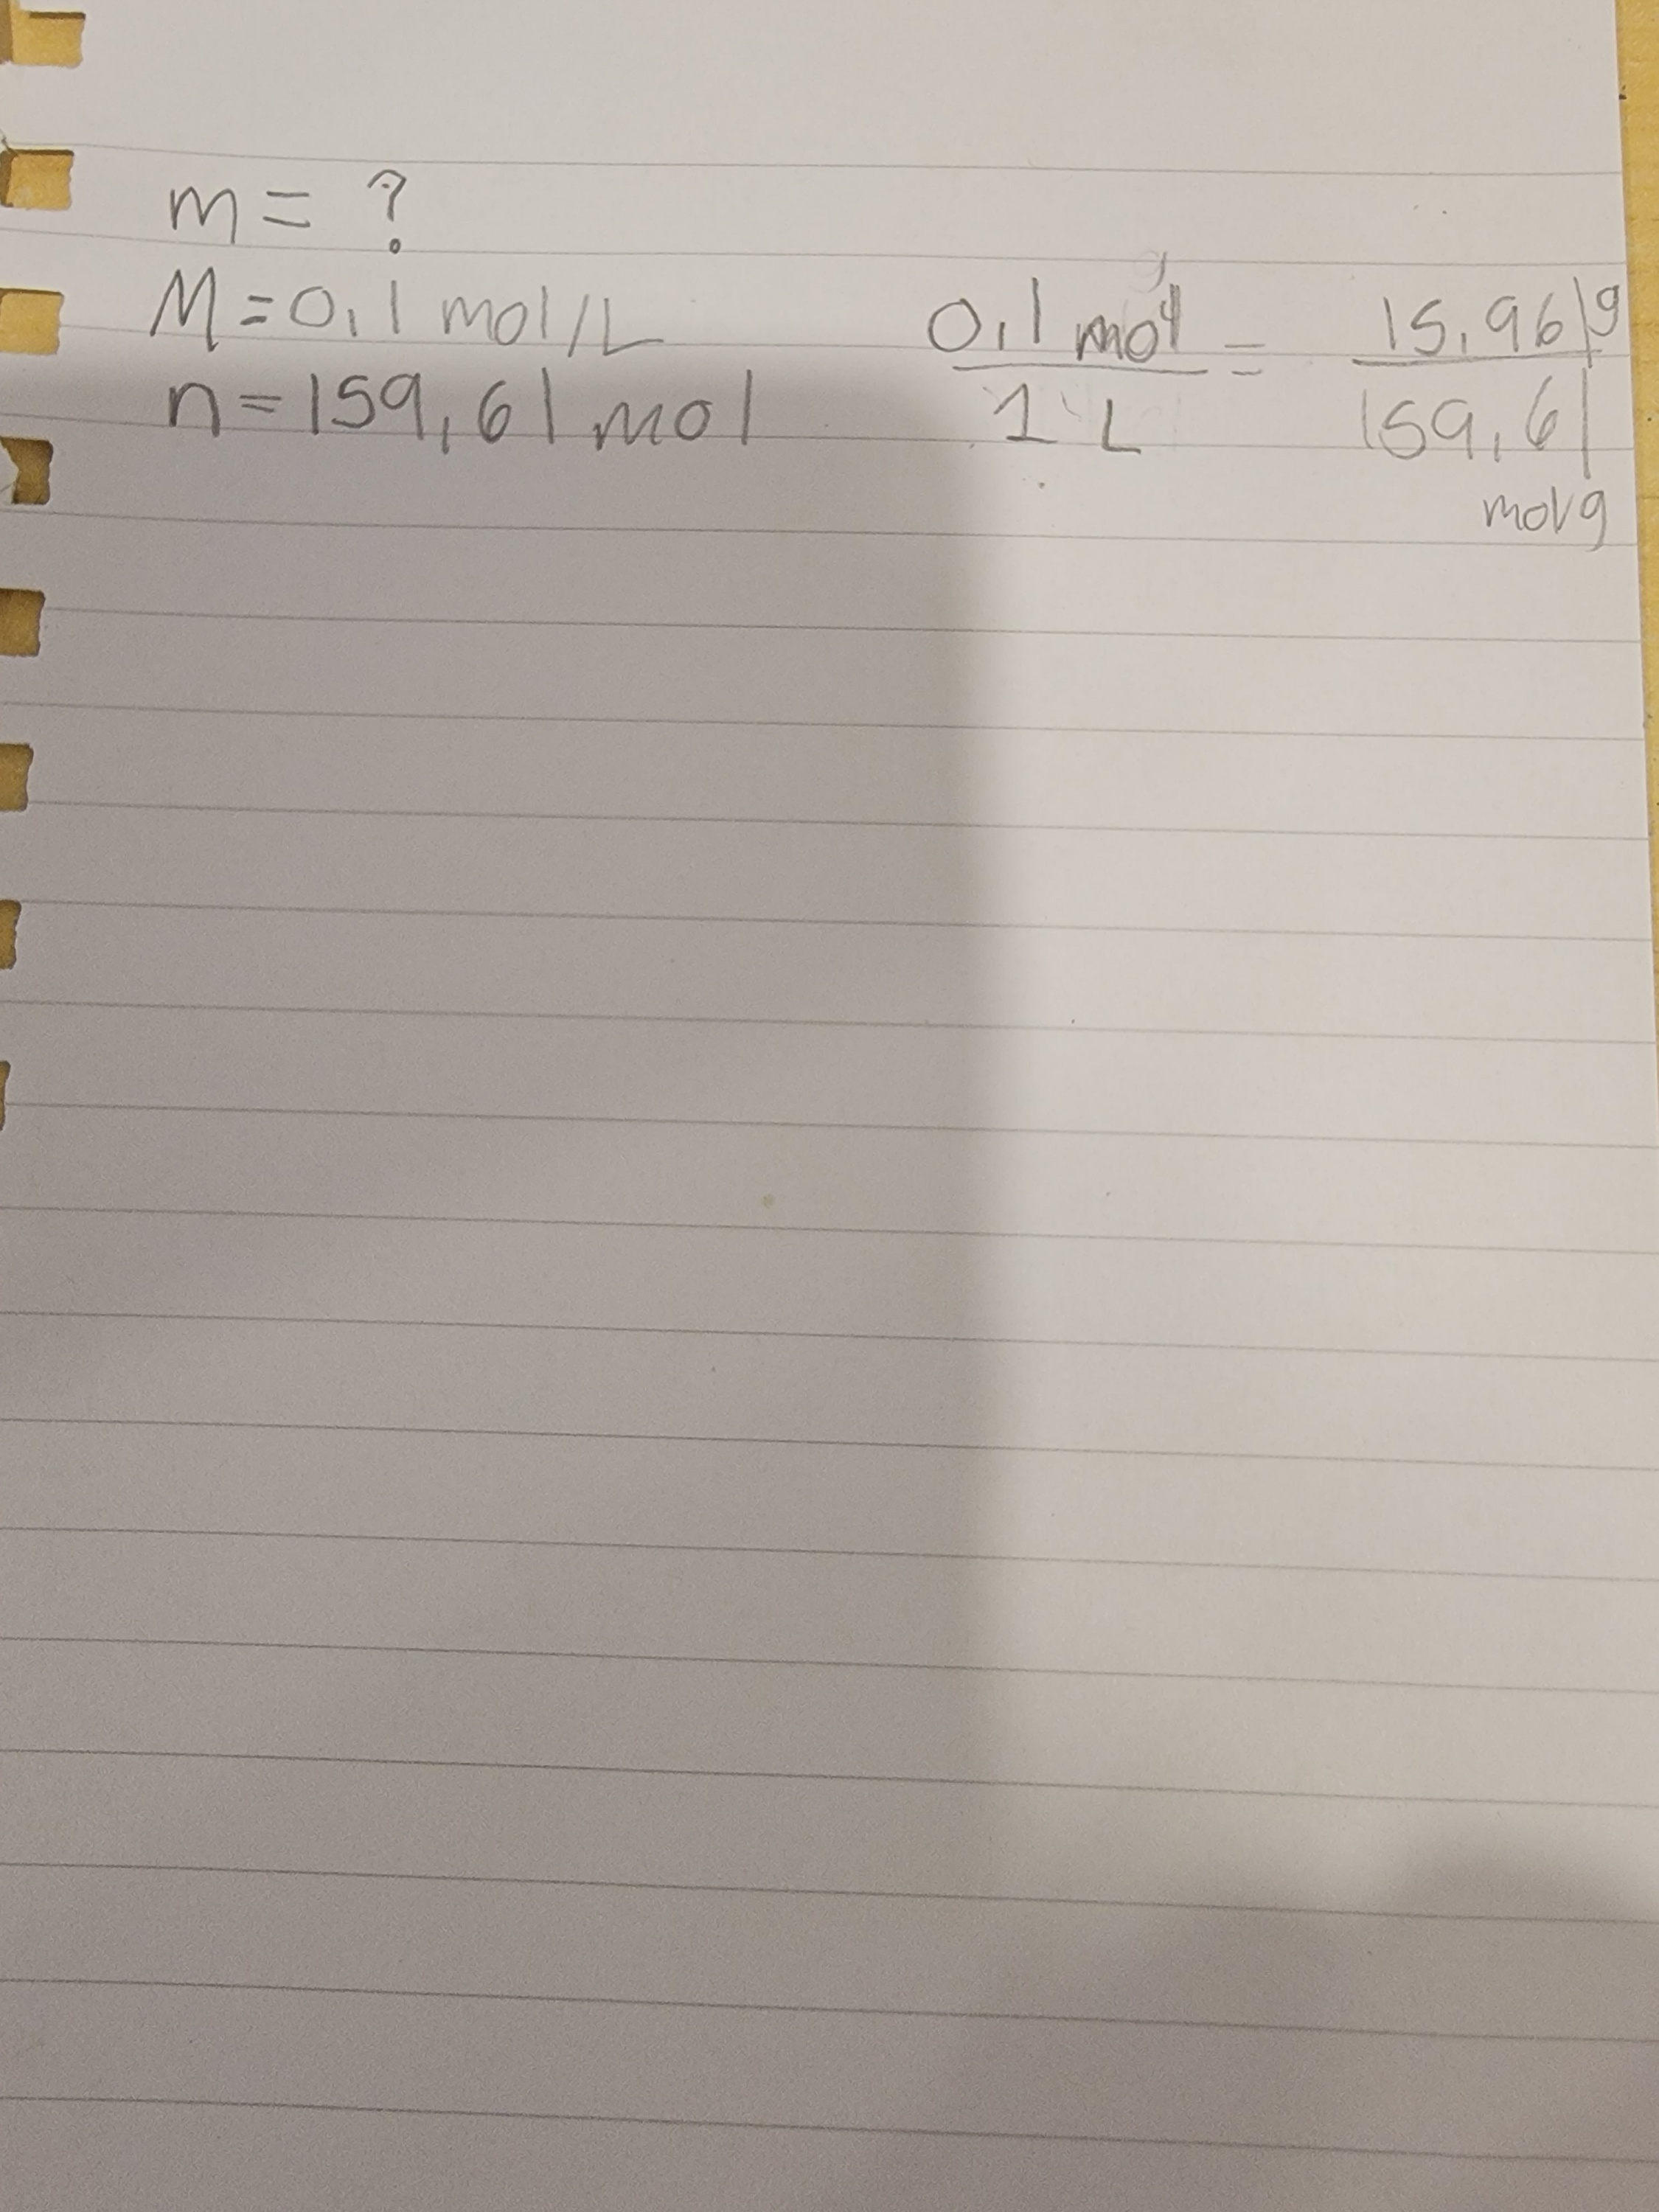 m = ?
M = 0,1 mol/L
n = 159,61 mol
0,1 mol = 15,961g
1 L 159,61
mol/g